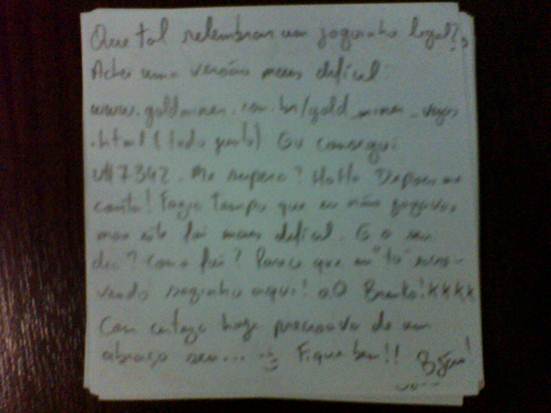 Que tal relembrar um joguinho legal?
Achei uma versão mais difícil:
www.goldminer.com.br/gold_miner_vegas
.html (tudo junto) Eu consegui
7342. Me supera? HaHa Depois me
conta! Fazia tempo que eu não jogava
mas este foi mais difícil. E o seu
dia? Como foi? Parece que eu "to" escre-
vendo sozinho aqui! oO Brinks! KKKK
Com certeza hoje precisava de um
abraço seu... Fique bem!! Bjim!